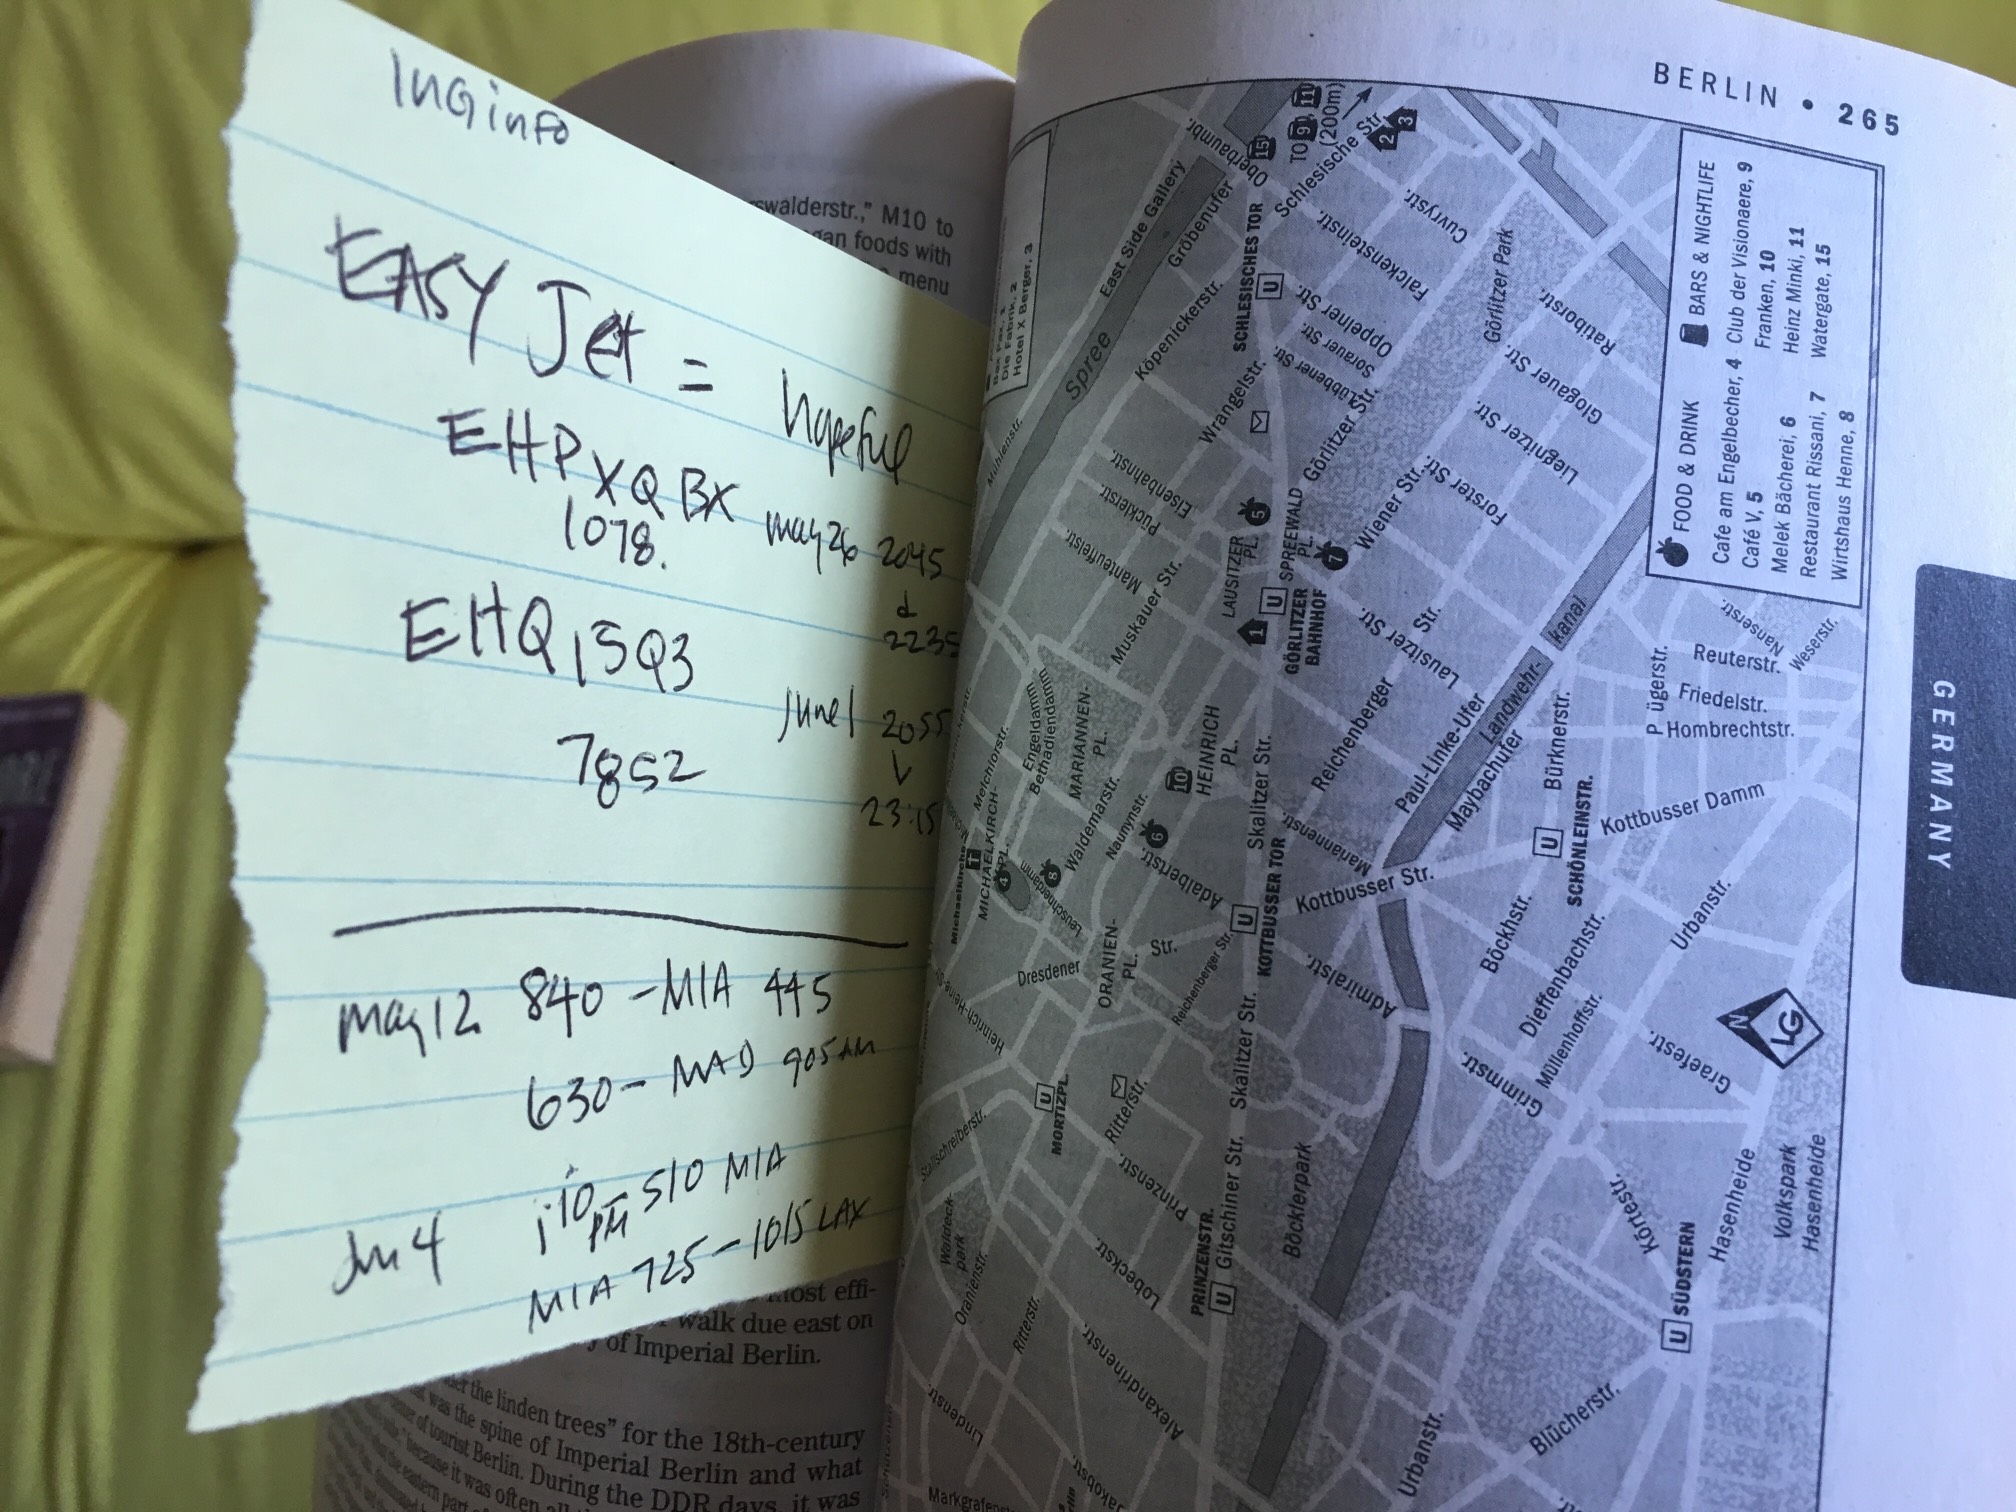 INGinfo
EASY Jet = hopeful
EHPXQBX
1078.
may 26 2045
2235
EHQ15Q3
7852
June 1 2055
23:15
may 12 840 - MIA 445
630 - MAD 905 AM
Jun 4 110 PM 510 MIA
MIA 725 - 1015 LAX
swalderstr.," M10 to
gan foods with
menu
most effi-
walk due east on
of Imperial Berlin.
the linden trees" for the 18th-century
was the spine of Imperial Berlin and what
of tourist Berlin. During the DDR days, it was
because it was often
the eastern part of
BERLIN • 265
GERMANY
Die Fabrik, 2
Hotel X Berger, 3
FOOD & DRINK
Cafe am Engelbecher, 4
Café V, 5
Melek Bächerei, 6
Restaurant Rissani, 7
Wirtshaus Henne, 8
BARS & NIGHTLIFE
Club der Visionaere, 9
Franken, 10
Heinz Minki, 11
Watergate, 15
TO 9 11
(200m)
15
2
3
Oberbaumbr.
Schlesische Str.
East Side Gallery
Gröbenufer
SCHLESISCHES TOR
U
Cuvrystr.
Falckensteinstr.
Oppelner Str.
Sorauer Str.
Lübbener Str.
Görlitzer Str.
Görlitzer Park
Ratiborstr.
Glogauer Str.
Liegnitzer Str.
Forster Str.
Wiener Str.
Spree
Köpenickerstr.
Wrangelstr.
Mühlenstr.
Eisenbahnstr.
Pücklerstr.
Manteuffelstr.
Muskauer Str.
LAUSITZER PL.
5
SPREEWALD PL.
7
1
U
GÖRLITZER BAHNHOF
Lausitzer Str.
Reichenberger Str.
Paul-Linke-Ufer
Landwehr-kanal
Maybachufer
Bürknerstr.
Pügerstr.
Nanserstr.
Weserstr.
Reuterstr.
Friedelstr.
Hombrechtstr.
Kottbusser Damm
U
SCHÖNLEINSTR.
Engeldamm
Bethadiendamm
MARIANNEN-PL.
Melchiorstr.
MICHAELKIRCH-PL.
4
Leuschnerdamm
8
Waldemarstr.
Naunynstr.
6
10
HEINRICH PL.
Adalbertstr.
Skalitzer Str.
Mariannenstr.
U
KOTTBUSSER TOR
Kottbusser Str.
Böckhstr.
Dieffenbachstr.
Urbanstr.
Müllenhoffstr.
Grimmstr.
Graefestr.
N
LG
Dresdener Str.
ORANIEN-PL.
Reichenberger Str.
Admiralstr.
Heinrich-Heine-Str.
Skalitzer Str.
U
MORTIZPL.
Ritterstr.
Prinzenstr.
Stallschreiberstr.
Waldeck-park
Oranienstr.
Ritterstr.
Lobeckstr.
Gitschiner Str.
PRINZENSTR.
U
Böcklerpark
Alexandrinenstr.
Lindenstr.
Jakobstr.
Urbanstr.
Blücherstr.
Körtestr.
U
SÜDSTERN
Hasenheide
Volkspark
Hasenheide